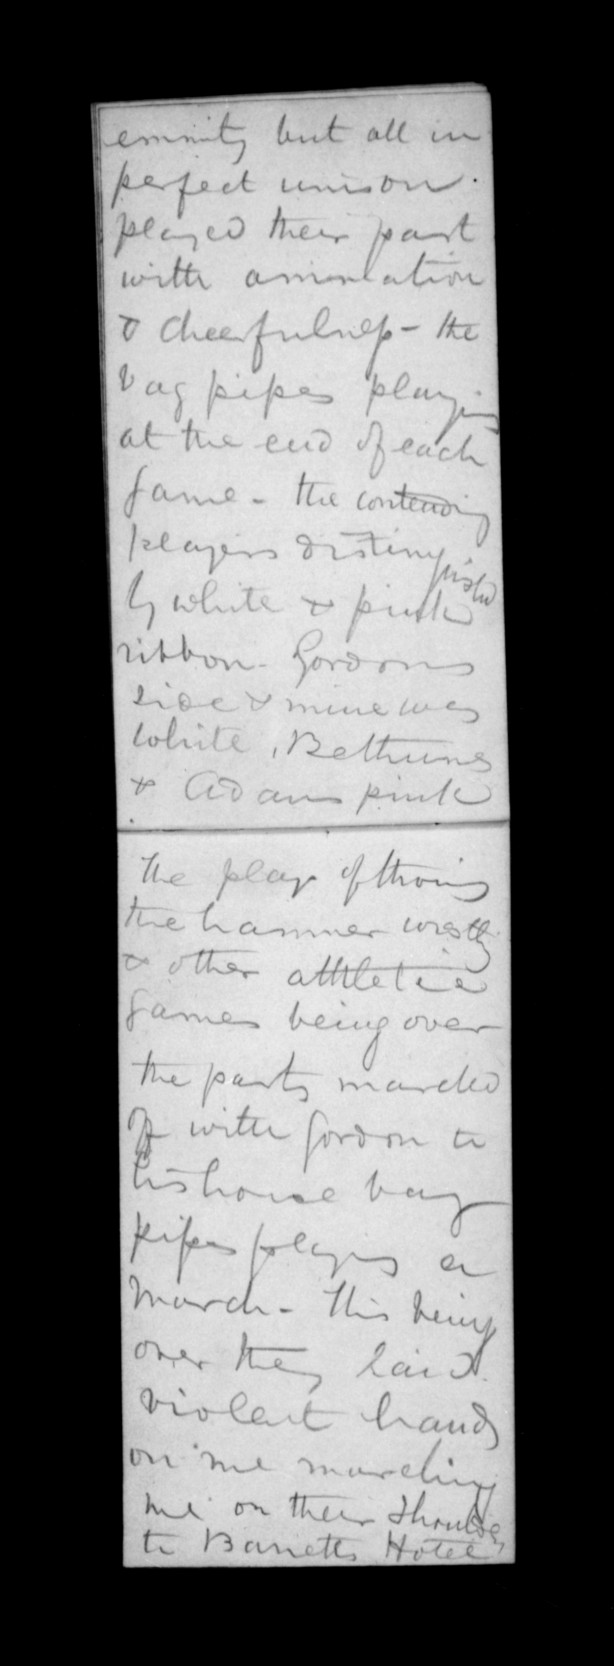 enmity but all in
perfect unison.
played their part
with animation
& cheerfulness - the
bag pipes playing
at the end of each
game - the contending
players distinguished
by white & pink
ribbon - Gordons
side & mine was
white, Bethunes
& Adams pink
the play of throwing
the hammer wrestlg
& other athletic
games being over
the party marched
off with Gordon to
his house bag
pipes playing a
march - this being
over they laid
violent hands
on me marching
me on their shoulders
to Barretts Hotel